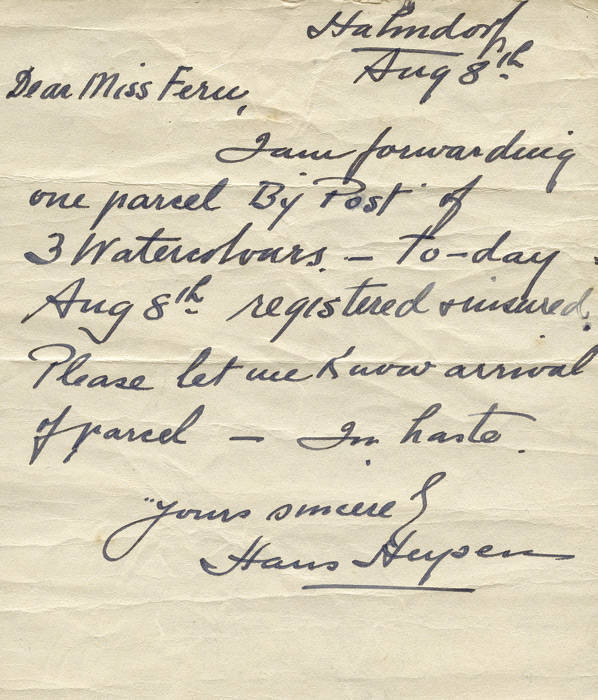 Hahndorf
Aug 8th
Dear Miss Fern,
I am forwarding
one parcel By Post of
3 Watercolours. – to-day
Aug 8th registered & insured.
Please let me know arrival
of parcel – In haste.
Yours sincerely
Hans Heysen